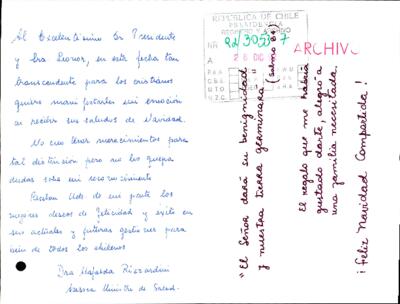 Al Excelentísimo Sr Presidente
y Sra Leonor, en esta fecha tan
transcendente para los cristianos
quiero manifestarles mi emoción
al recibir sus saludos de Navidad.
No creo tener merecimientos para
tal distinción pero no les quepa
dudas sobre mi reconocimiento
Reciban Uds de mi parte los
mejores deseos de felicidad y éxito en
sus actuales y futuras gestiones para
bien de todos los chilenos
Dra Mafalda Rizzardini
Asesora Ministro de Salud.
REPUBLICA DE CHILE
PRESIDENCIA
REGISTRO Y ARCHIVO
NR
92/30537
A
28 DIC
ARCHIVO
"El Señor dará su benignidad
y nuestra tierra germinará" (Salmo 84)
El regalo que me habría
gustado darte, alegró a
una familia necesitada.
¡Feliz Navidad Compartida!